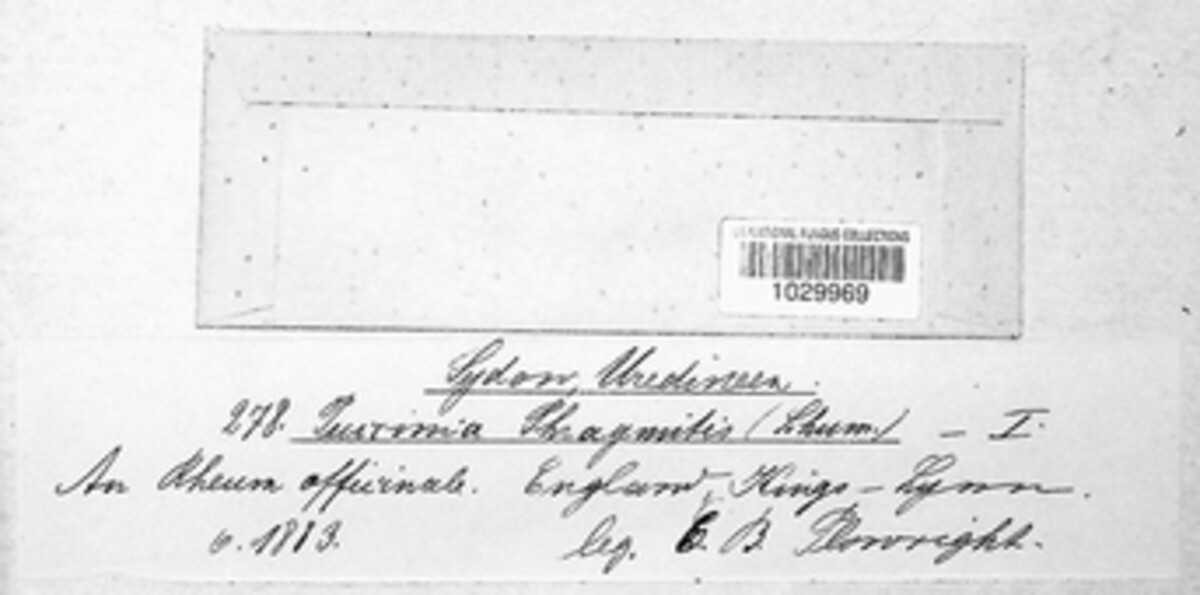 U.S. NATIONAL FUNGUS COLLECTIONS
1029969
Sydow, Uredineen.
278. Puccinia Phragmitis (Schum.) — I.
An Rheum officinale. England, Kings-Lynn.
1883. leg. C. B. Plowright.